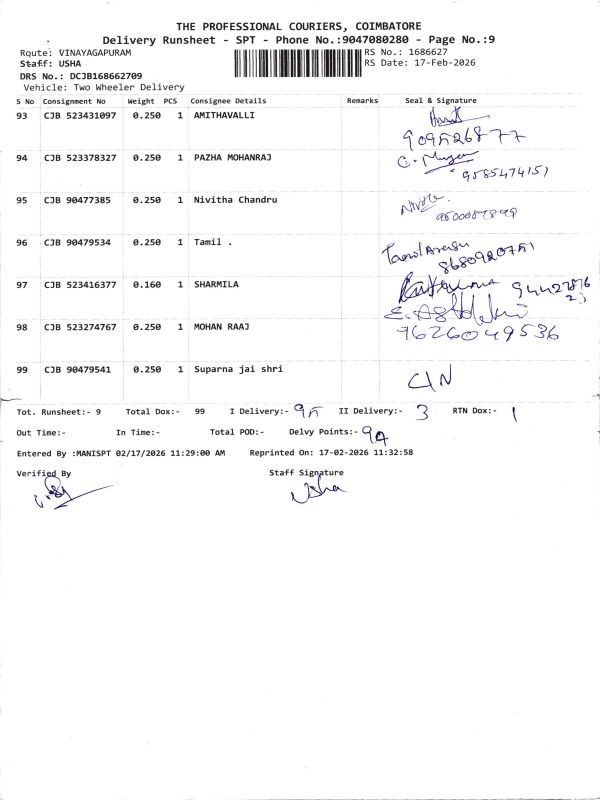 THE PROFESSIONAL COURIERS, COIMBATORE
Delivery Runsheet - SPT - Phone No.:9047080280 - Page No.:9
Route: VINAYAGAPURAM
RS No.: 1686627
Staff: USHA
RS Date: 17-Feb-2026
DRS No.: DCJB168662709
Vehicle: Two Wheeler Delivery
S No Consignment No Weight PCS Consignee Details Remarks Seal & Signature
93 CJB 523431097 0.250 1 AMITHAVALLI
94 CJB 523378327 0.250 1 PAZHA MOHANRAJ
9585474151
95 CJB 90477385 0.250 1 Nivitha Chandru
96 CJB 90479534 0.250 1 Tamil .
8680920751
97 CJB 523416377 0.160 1 SHARMILA
98 CJB 523274767 0.250 1 MOHAN RAAJ
9626049536
99 CJB 90479541 0.250 1 Suparna jai shri
C/N
Tot. Runsheet:- 9 Total Dox:- 99 I Delivery:- 95 II Delivery:- 3 RTN Dox:- 1
Out Time:- In Time:- Total POD:- Delvy Points:-
Entered By :MANISPT 02/17/2026 11:29:00 AM Reprinted On: 17-02-2026 11:32:58
Verified By Staff Signature
Usha